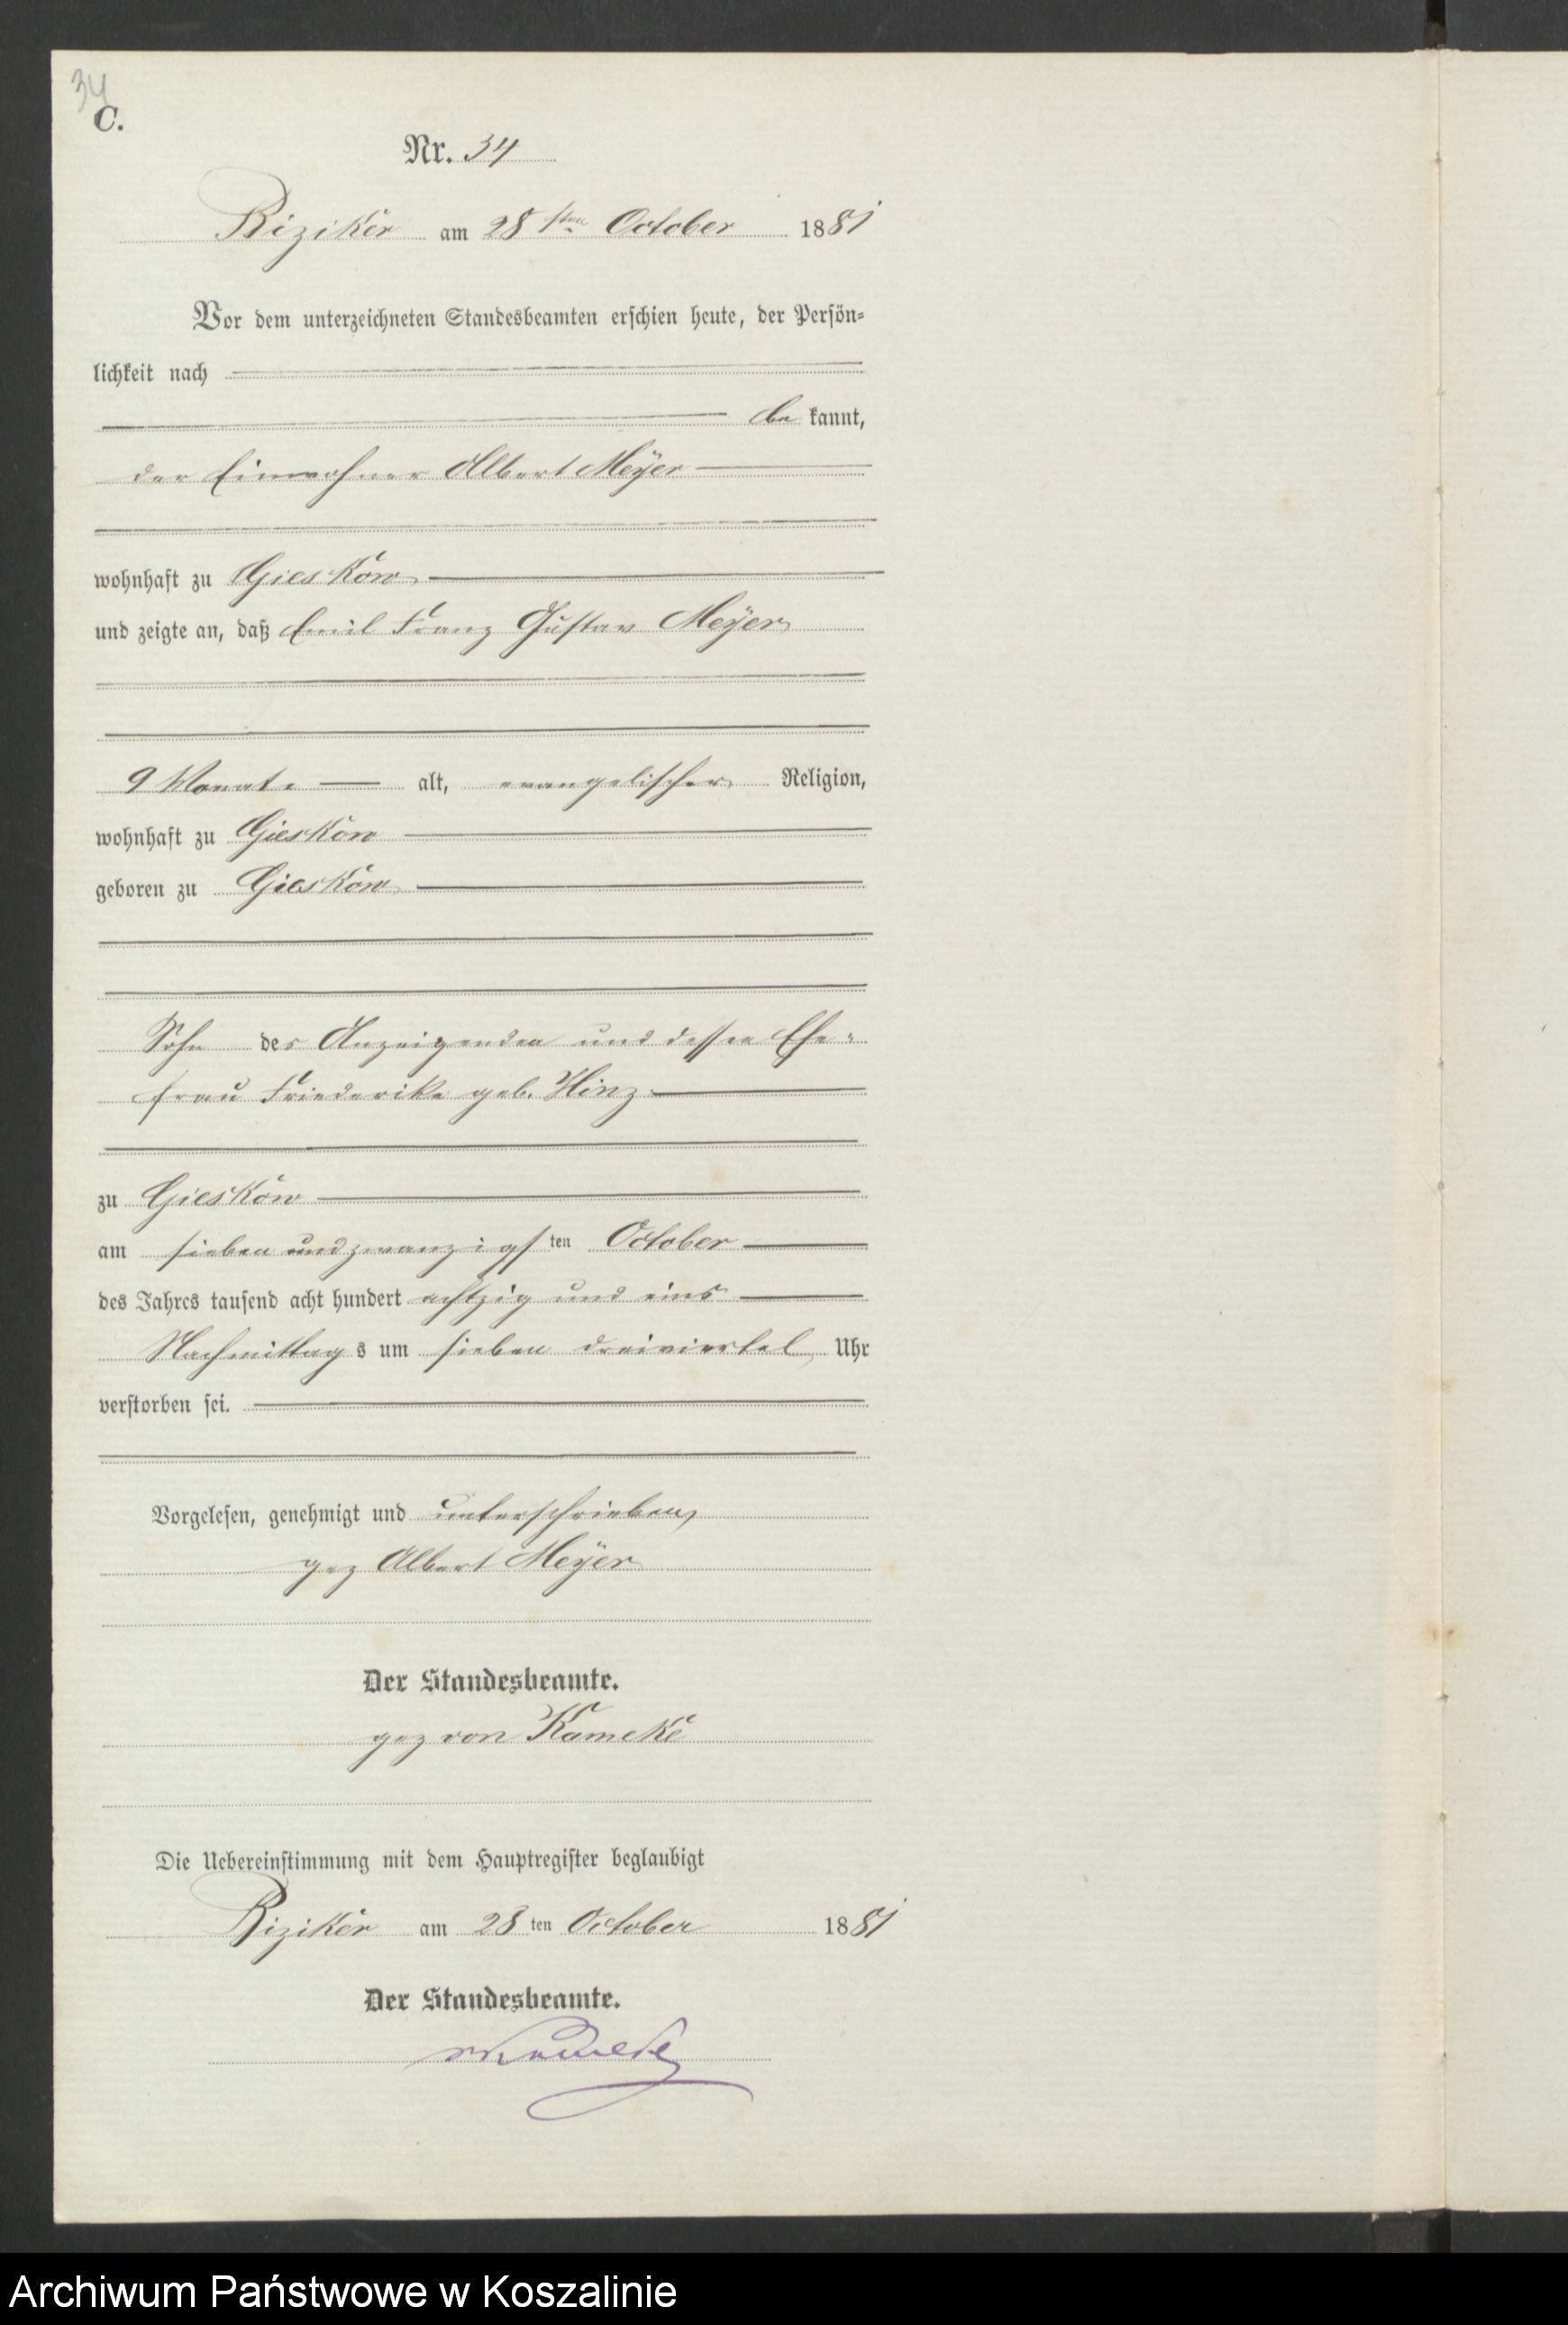 34
C.
Nr. 34
Riziker am 28 sten October 1881
Vor dem unterzeichneten Standesbeamten erschien heute, der Persön-
lichkeit nach
be kannt,
der Einwohner Albert Meÿer
wohnhaft zu Gieskow
und zeigte an, daß Emil Franz Gustav Meÿer
9 Monate alt, evangelischer Religion,
wohnhaft zu Gieskow
geboren zu Gieskow
Sohn des Anzeigenden und dessen Ehe-
frau Friederike geb. Hinz
zu Gieskow
am sieben und zwanzigsten October
des Jahres tausend acht hundert achtzig und eins
Nachmittags um sieben dreiviertel Uhr
verstorben sei.
Vorgelesen, genehmigt und unterschrieben
gez Albert Meÿer
Der Standesbeamte.
gez von Kameke
Die Uebereinstimmung mit dem Hauptregister beglaubigt
Riziker am 28 ten October 1881
Der Standesbeamte.
vKameke
Archiwum Państwowe w Koszalinie